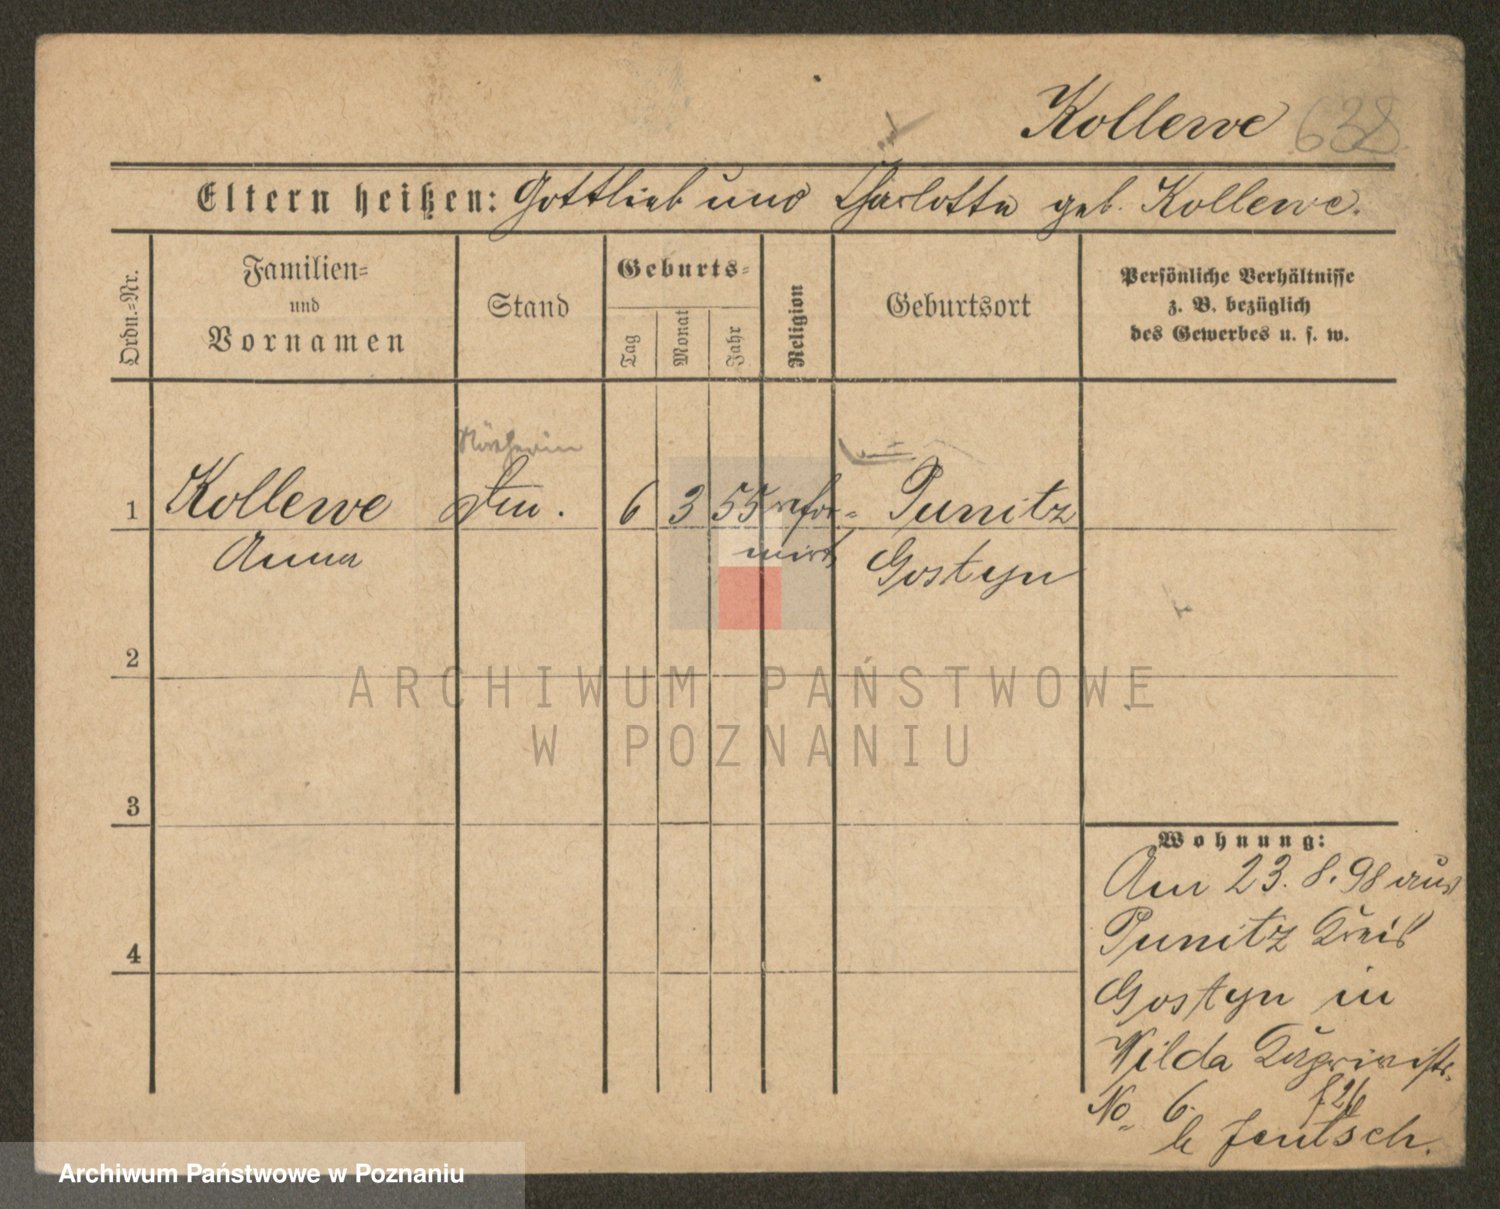 Kollewe 638
Eltern heißen: Gottlieb und Charlotte geb. Kollewe.
Ordn.-Nr.
Familien-
und
Vornamen
Stand
Geburts-
Tag
Monat
Jahr
Religion
Geburtsort
Persönliche Verhältnisse
z. B. bezüglich
des Gewerbes u. s. w.
Nätherin
1 Kollewe 6 3 55 refor- Punitz
Anna mirt Gostyn
2
ARCHIWUM PAŃSTWOWE
W POZNANIU
3
Wohnung:
Am 23. 8. 98 aus
Punitz Kreis
Gostyn in
4
Wilda
No 6.
b Jentsch.
Archiwum Państwowe w Poznaniu